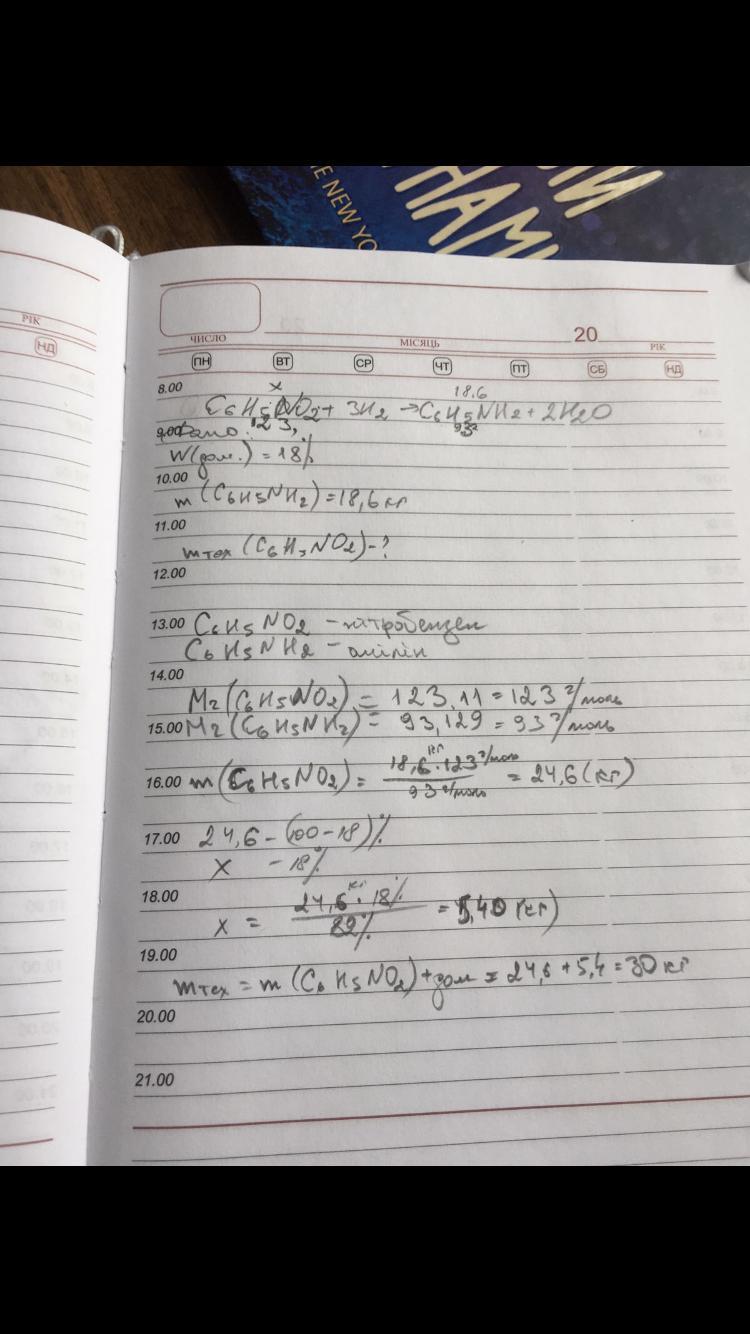 E NEW YO
НАМИ
РІК
НД
20
ЧИСЛО МІСЯЦЬ РІК
ПН ВТ СР ЧТ ПТ СБ НД
8.00
x 18,6
C6H5NO2 + 3H2 → C6H5NH2 + 2H2O
123, 93
9.00 Дано:
W(дом.) = 18%
10.00
m (C6H5NH2) = 18,6 кг
11.00
mтех (C6H5NO2) - ?
12.00
13.00 C6H5NO2 - нітробензен
C6H5NH2 - анілін
14.00
Mr (C6H5NO2) = 123,11 = 123 г/моль
15.00 Mr (C6H5NH2) = 93,129 = 93 г/моль
16.00 m (C6H5NO2) = 18,6 кг · 123 г/моль / 93 г/моль = 24,6 (кг)
17.00 24,6 - (100-18)%
x - 18%
18.00
x = 24,6 кг · 18% / 82% = 5,40 (кг)
19.00
mтех = m (C6H5NO2) + дом = 24,6 + 5,4 = 30 кг
20.00
21.00